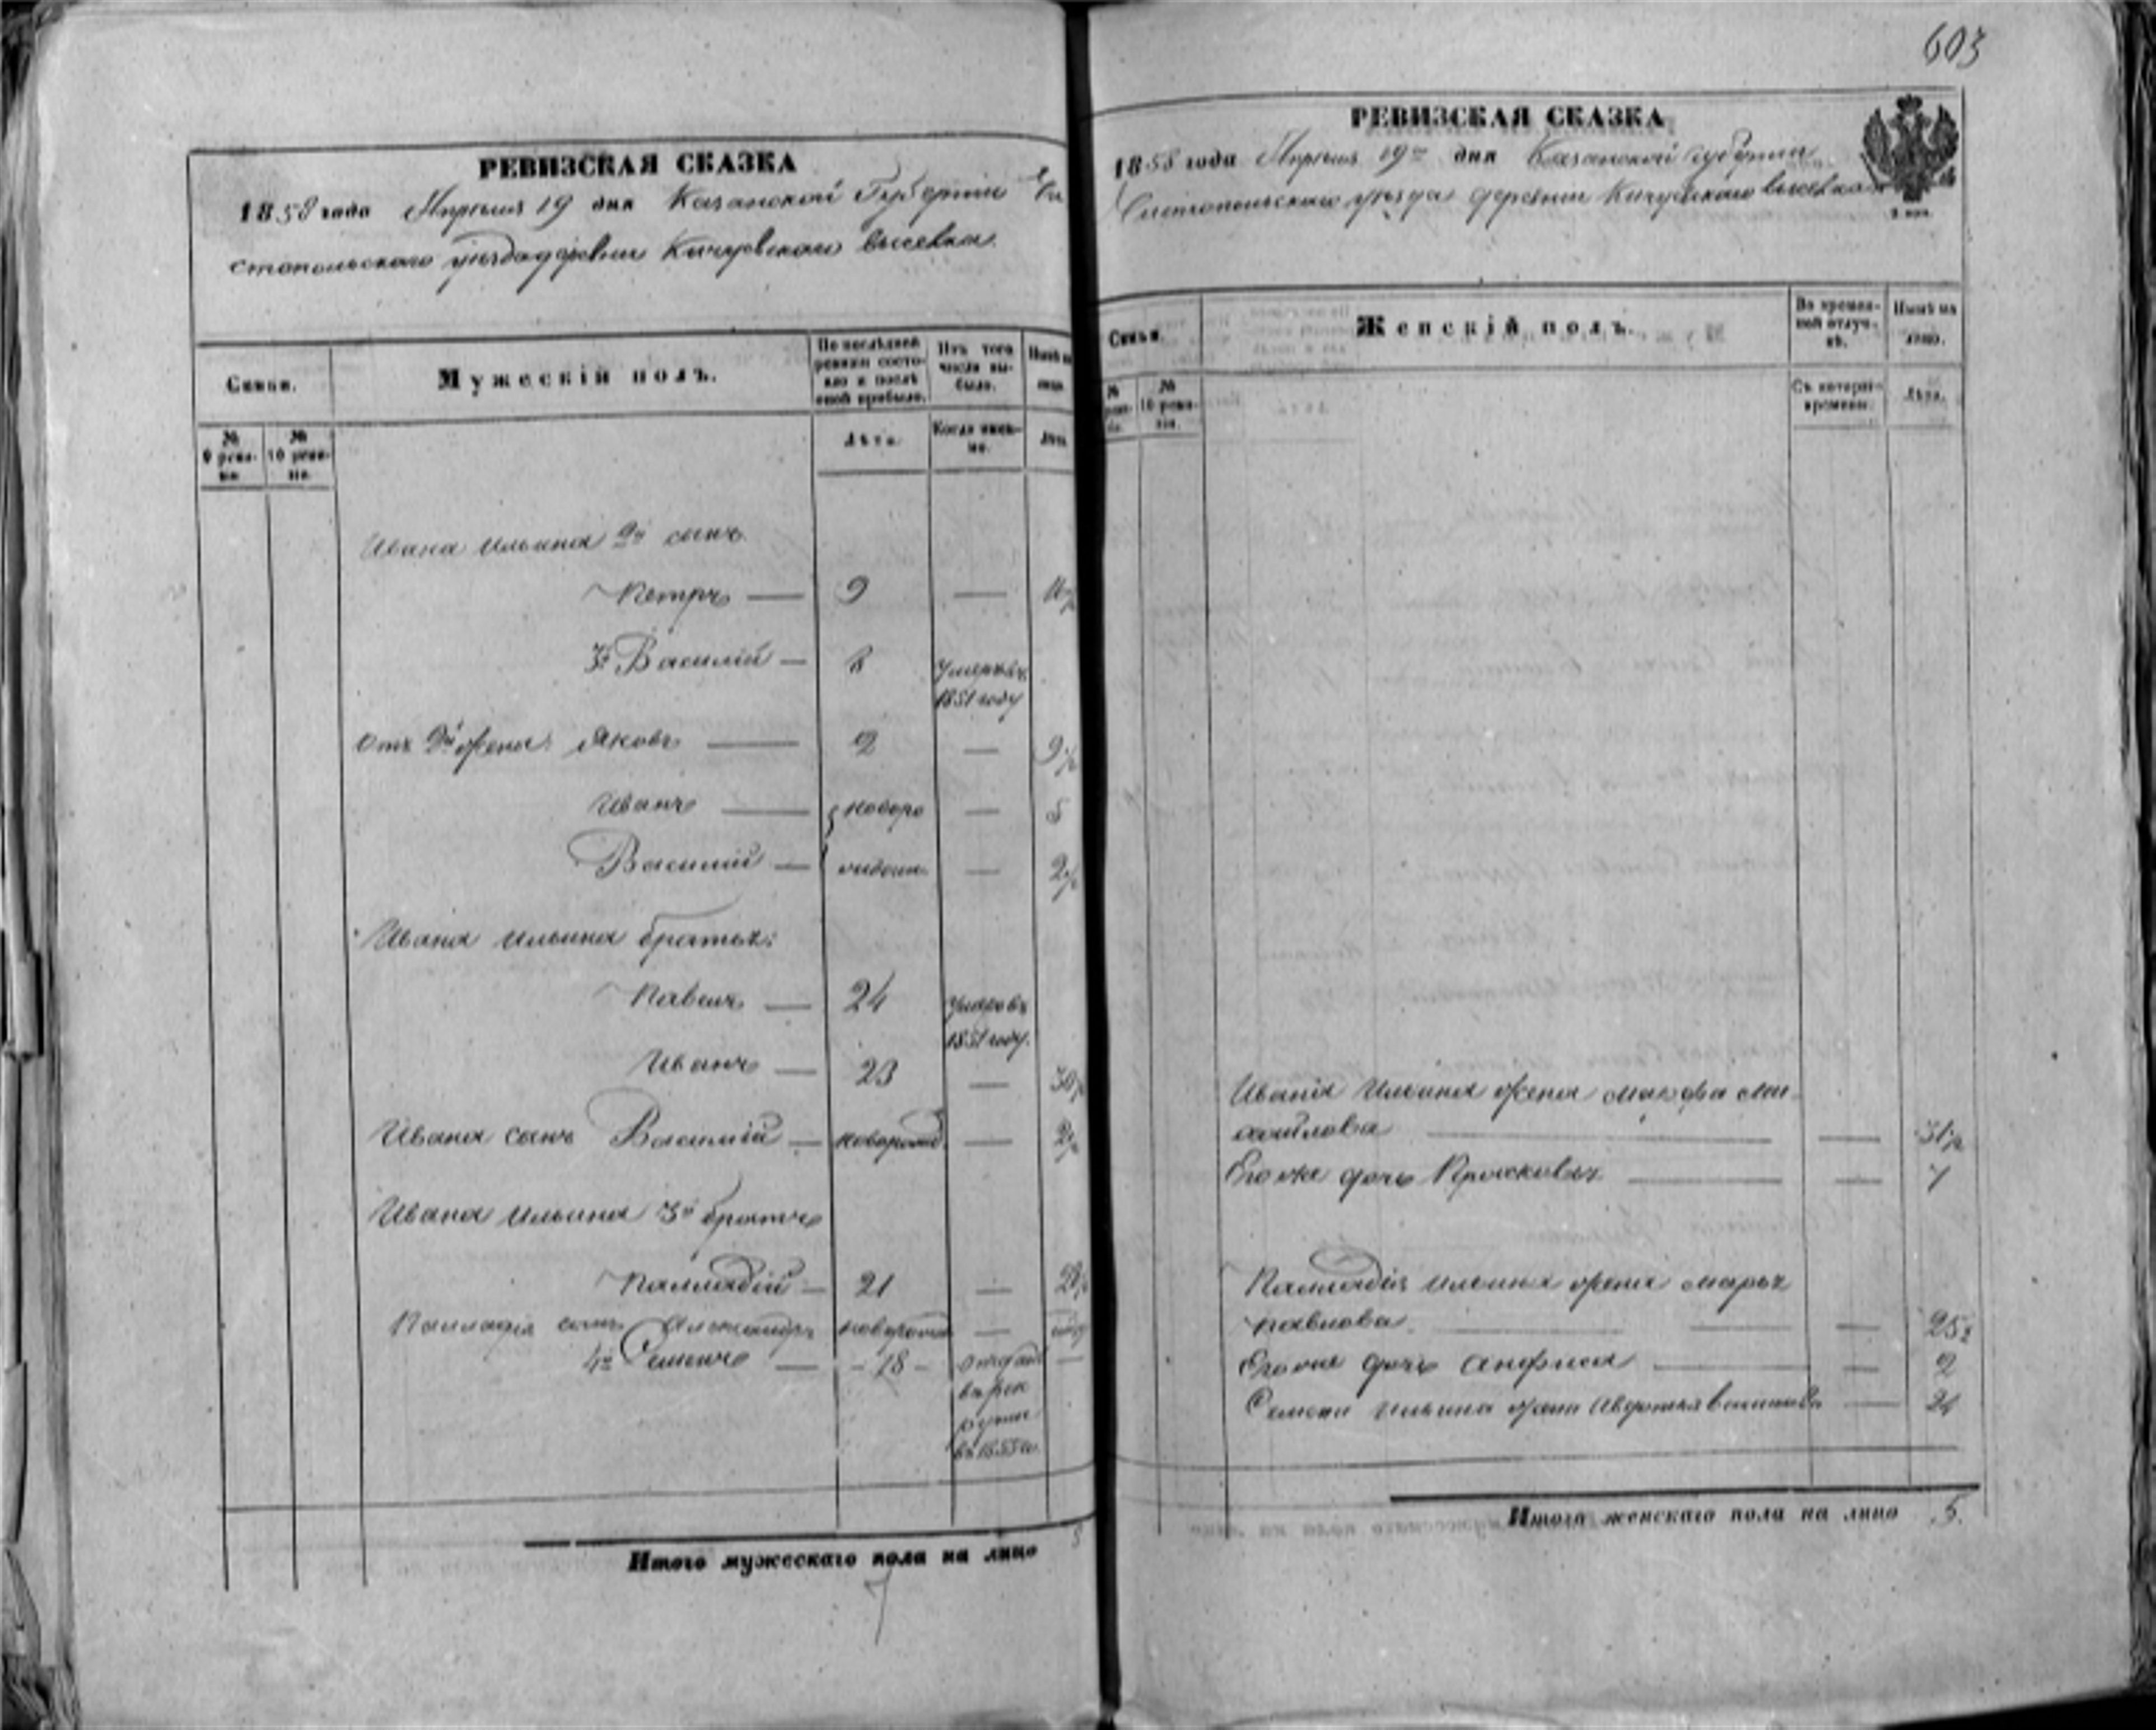 603
РЕВИЗСКАЯ СКАЗКА
1858 года Апреля 19 дня Казанской Губернии Чи
стопольскаго уезда деревни Кичуевскаго выселка
Семьи.
Мужескій полъ.
По последней ревизіи состояло и после оной прибыло.
Изъ того числа выбыло.
Ныне на лицо.
№ 9 ревизіи.
№ 10 ревизіи.
Лета.
Когда именно.
Лета
Ивана Ильина 2й сынъ
Петръ — 9 —
3й Василій — 8 Умеръ въ
1851 году
Отъ 2й жены: Яковъ — 2 — 9½
Иванъ — новоро — 5
Василій — — 2½
Ивана Ильина братья:
Павелъ — 24 Умеръ въ
1851 году
Иванъ — 23 — 30½
Ивана сынъ Василій — новорожд — 2½
Ивана Ильина 3й братъ
Палладій — 21 —
Палладія сынъ Александръ новорожд —
4й Семенъ — -18- отдан —
въ рек
руты
въ 1855 го
Итого мужескаго пола на лицо
7
РЕВИЗСКАЯ СКАЗКА
1858 года Апреля 19го дня Казанской Губерніи
Чистопольскаго уезда деревни Кичуевскаго выселка
Семьи.
Женскій полъ.
Во временной отлучке.
Ныне на лицо.
№ 10 ревизіи.
Съ котораго времени.
Лета.
Ивана Ильина жена Марфа Ми
хайлова — — 31½
Его же дочь Прасковья — — 7
Палладія Ильина жена Марья
Павлова — — 25½
Его же дочь Анфиса — — 2
Семена Ильина жена Авдотья — 24
Итого женскаго пола на лицо 5.